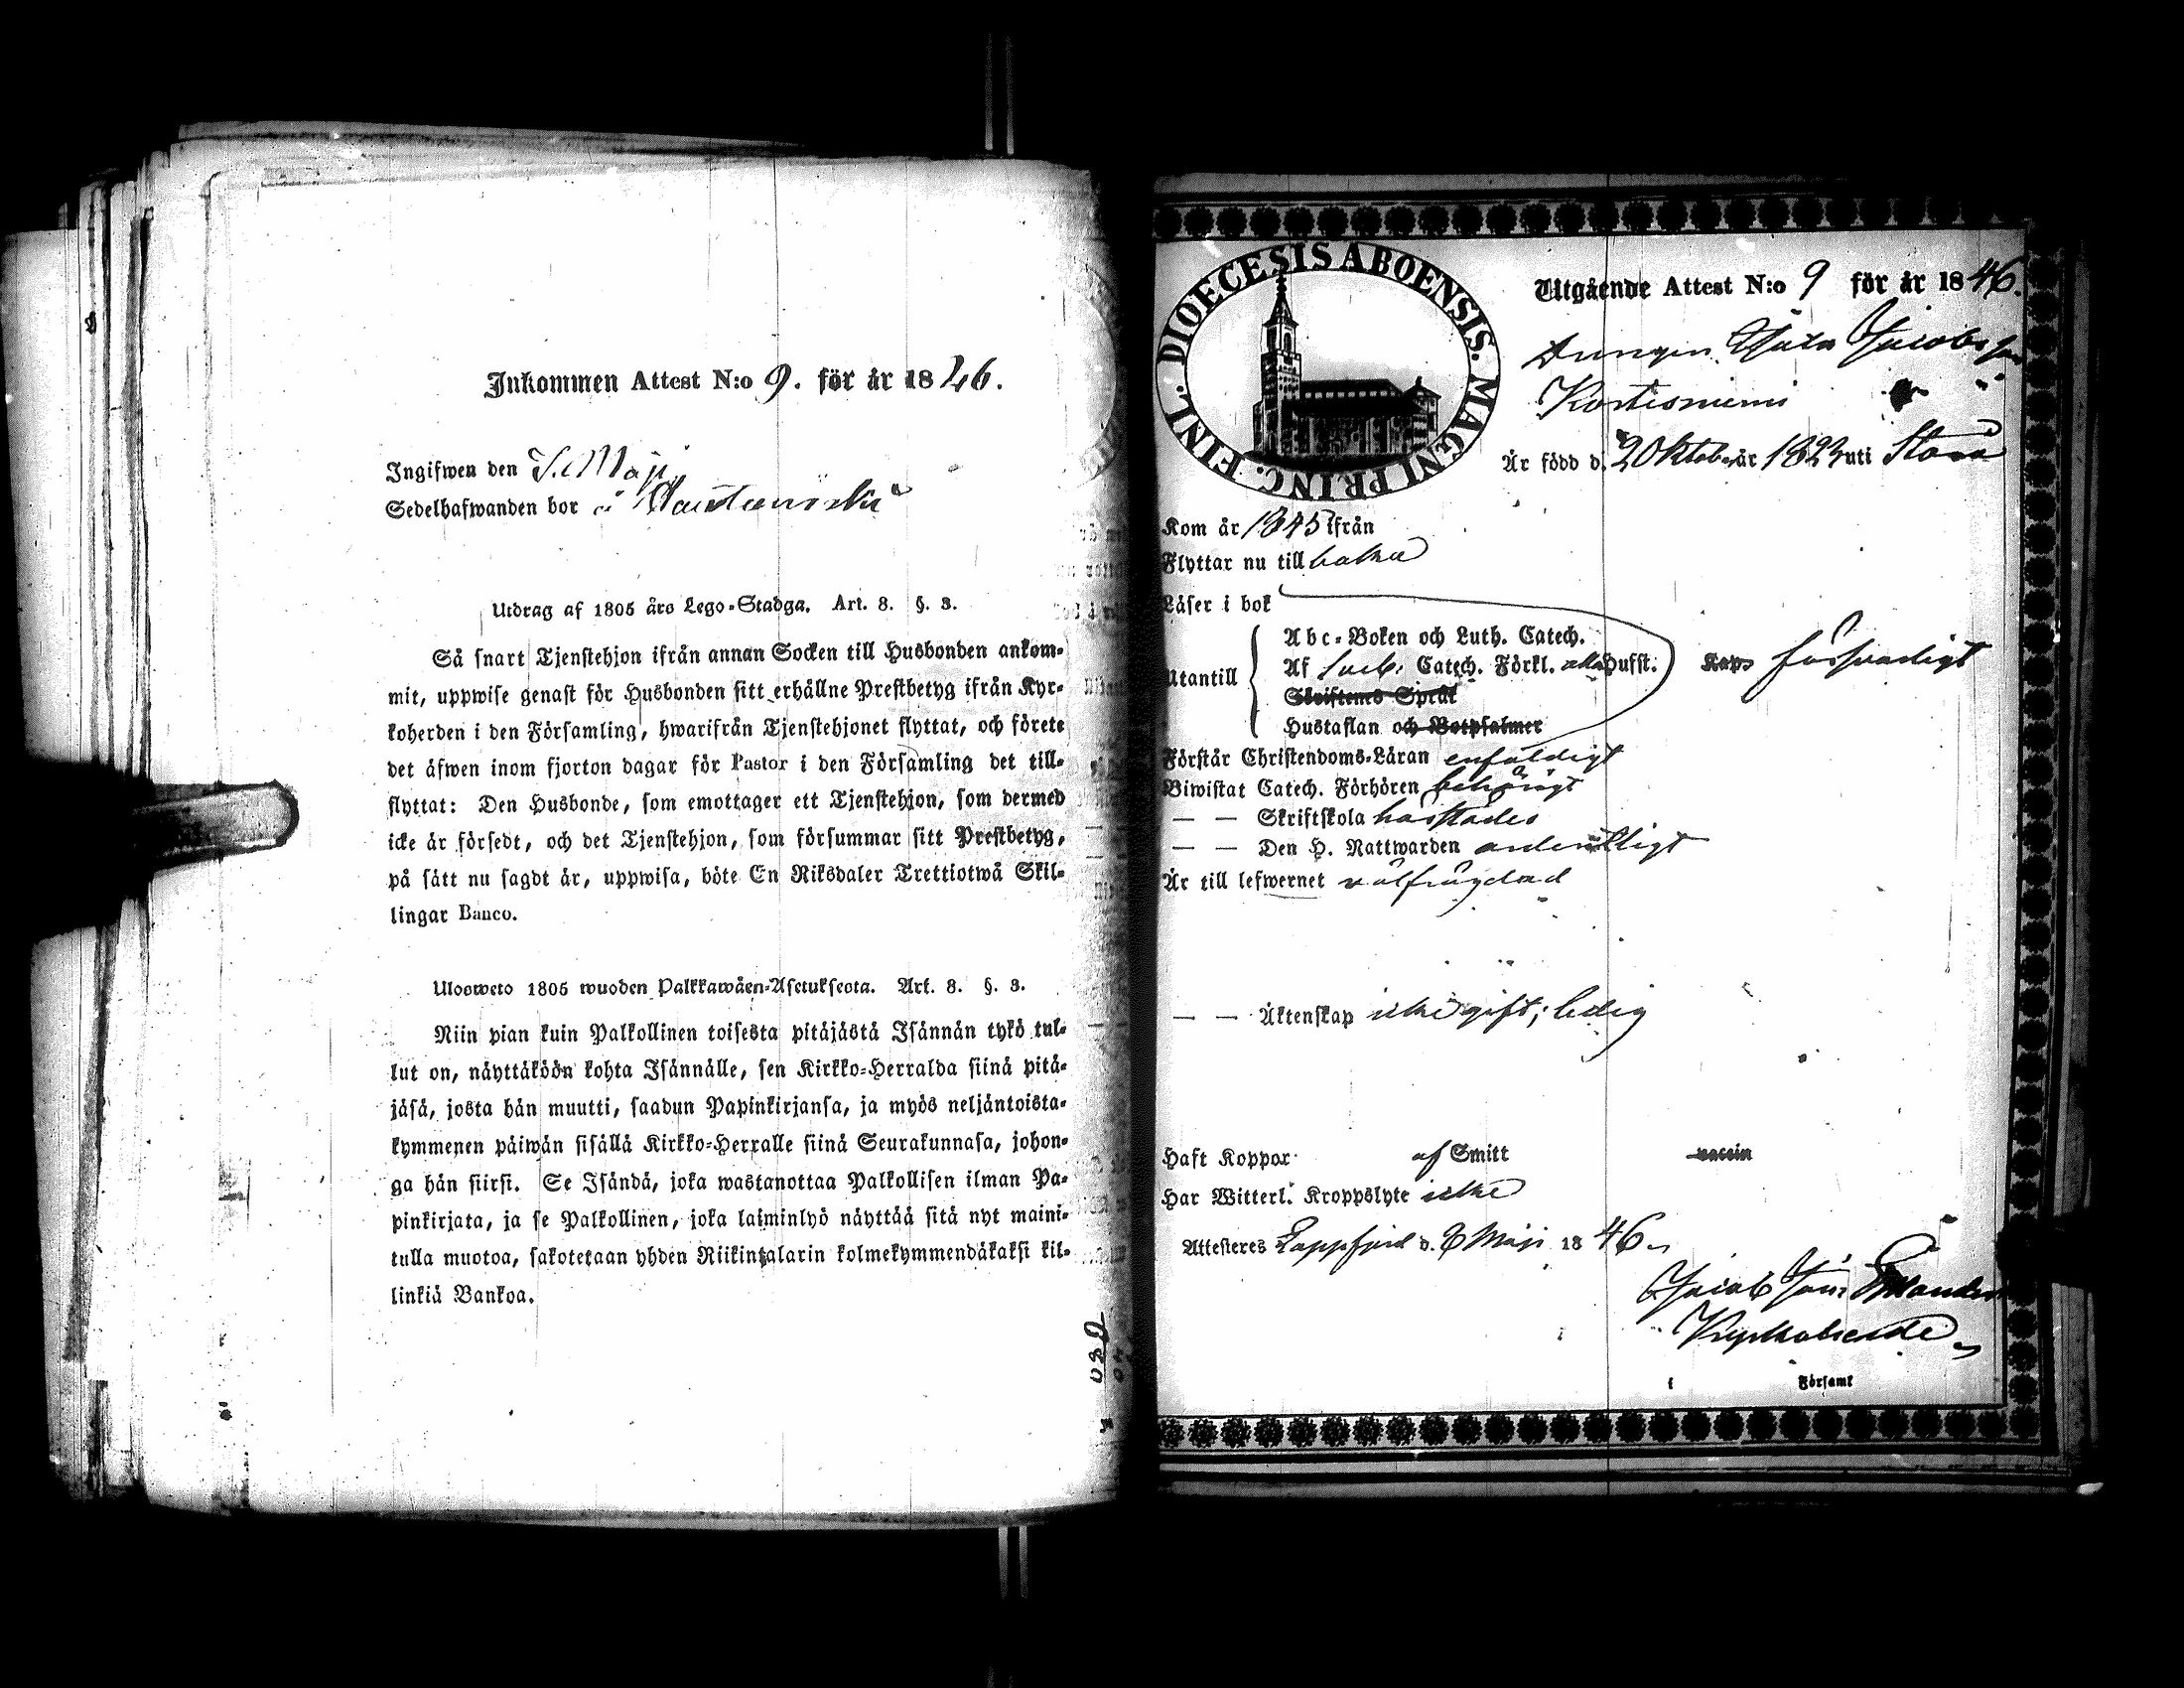 Inkommen Attest N:o 9. för år 1846.
Ingifwen den Maji
Sedelhafwanden bor å
Utdrag af 1805 års Lego-Stadga. Art. 8. §. 3.
Så snart Tjenstehjon ifrån annan Socken till Husbonden ankom-
mit, uppwise genast för Husbonden sitt erhållne Prestbetyg ifrån Kyr-
koherden i den Församling, hwarifrån Tjenstehjonet flyttat, och förete
det äfwen inom fjorton dagar för Pastor i den Församling det till-
flyttat: Den Husbonde, som emottager ett Tjenstehjon, som dermed
icke är försedt, och det Tjenstehjon, som försummar sitt Prestbetyg,
på sätt nu sagdt är, uppwisa, böte En Riksdaler Trettiotwå Skil-
lingar Banco.
Ulosweto 1805 wuoden Palkkawäen-Asetuksesta. Art. 8. §. 3.
Niin pian kuin Palkollinen toisesta pitäjästä Isännän tykö tul-
lut on, näyttäköön kohta Isännälle, sen Kirkko-Herralda siinä pitä-
jäsä, josta hän muutti, saadun Papinkirjansa, ja myös neljäntoista-
kymmenen päiwän sisällä Kirkko-Herralle siinä Seurakunnasa, johon-
ga hän siirsi. Se Isändä, joka wastanottaa Palkollisen ilman Pa-
pinkirjata, ja se Palkollinen, joka laiminlyö näyttää sitä nyt maini-
tulla muotoa, sakotetaan yhden Riikintalarin kolmekymmendäkaksi kil-
linkiä Bankoa.
FINL. DIOECESIS ABOENSIS. MAGNI PRINC.
Utgående Attest N:o 9 för år 1846.
Drängen Jacobsson
Kortesniemi
Är född d. 2 Oktob. år 1823 uti Storå
Kom år 1845 ifrån
Flyttar nu till baka
Läser i bok
Utantill
Abc-Boken och Luth. Catech.
Af Catech. Förkl. alla Hufst. försvarligt
Skriftenes Språk
Hustaflan och Botpsalmer
Förstår Christendoms-Läran enfaldigt
Biwistat Catech. Förhören behörigt
— — Skriftskola härstädes
— — Den H. Nattwarden ordentligt
Är till lefwernet välfrägdad
— — Äktenskap icke gift; ledig
Haft Koppor af Smitt vaccin
Har Witterl. Kroppslyte icke
Attesteres Lappfjerd d. Maji 1846.
Jacob
Kyrkoherde
i Församl